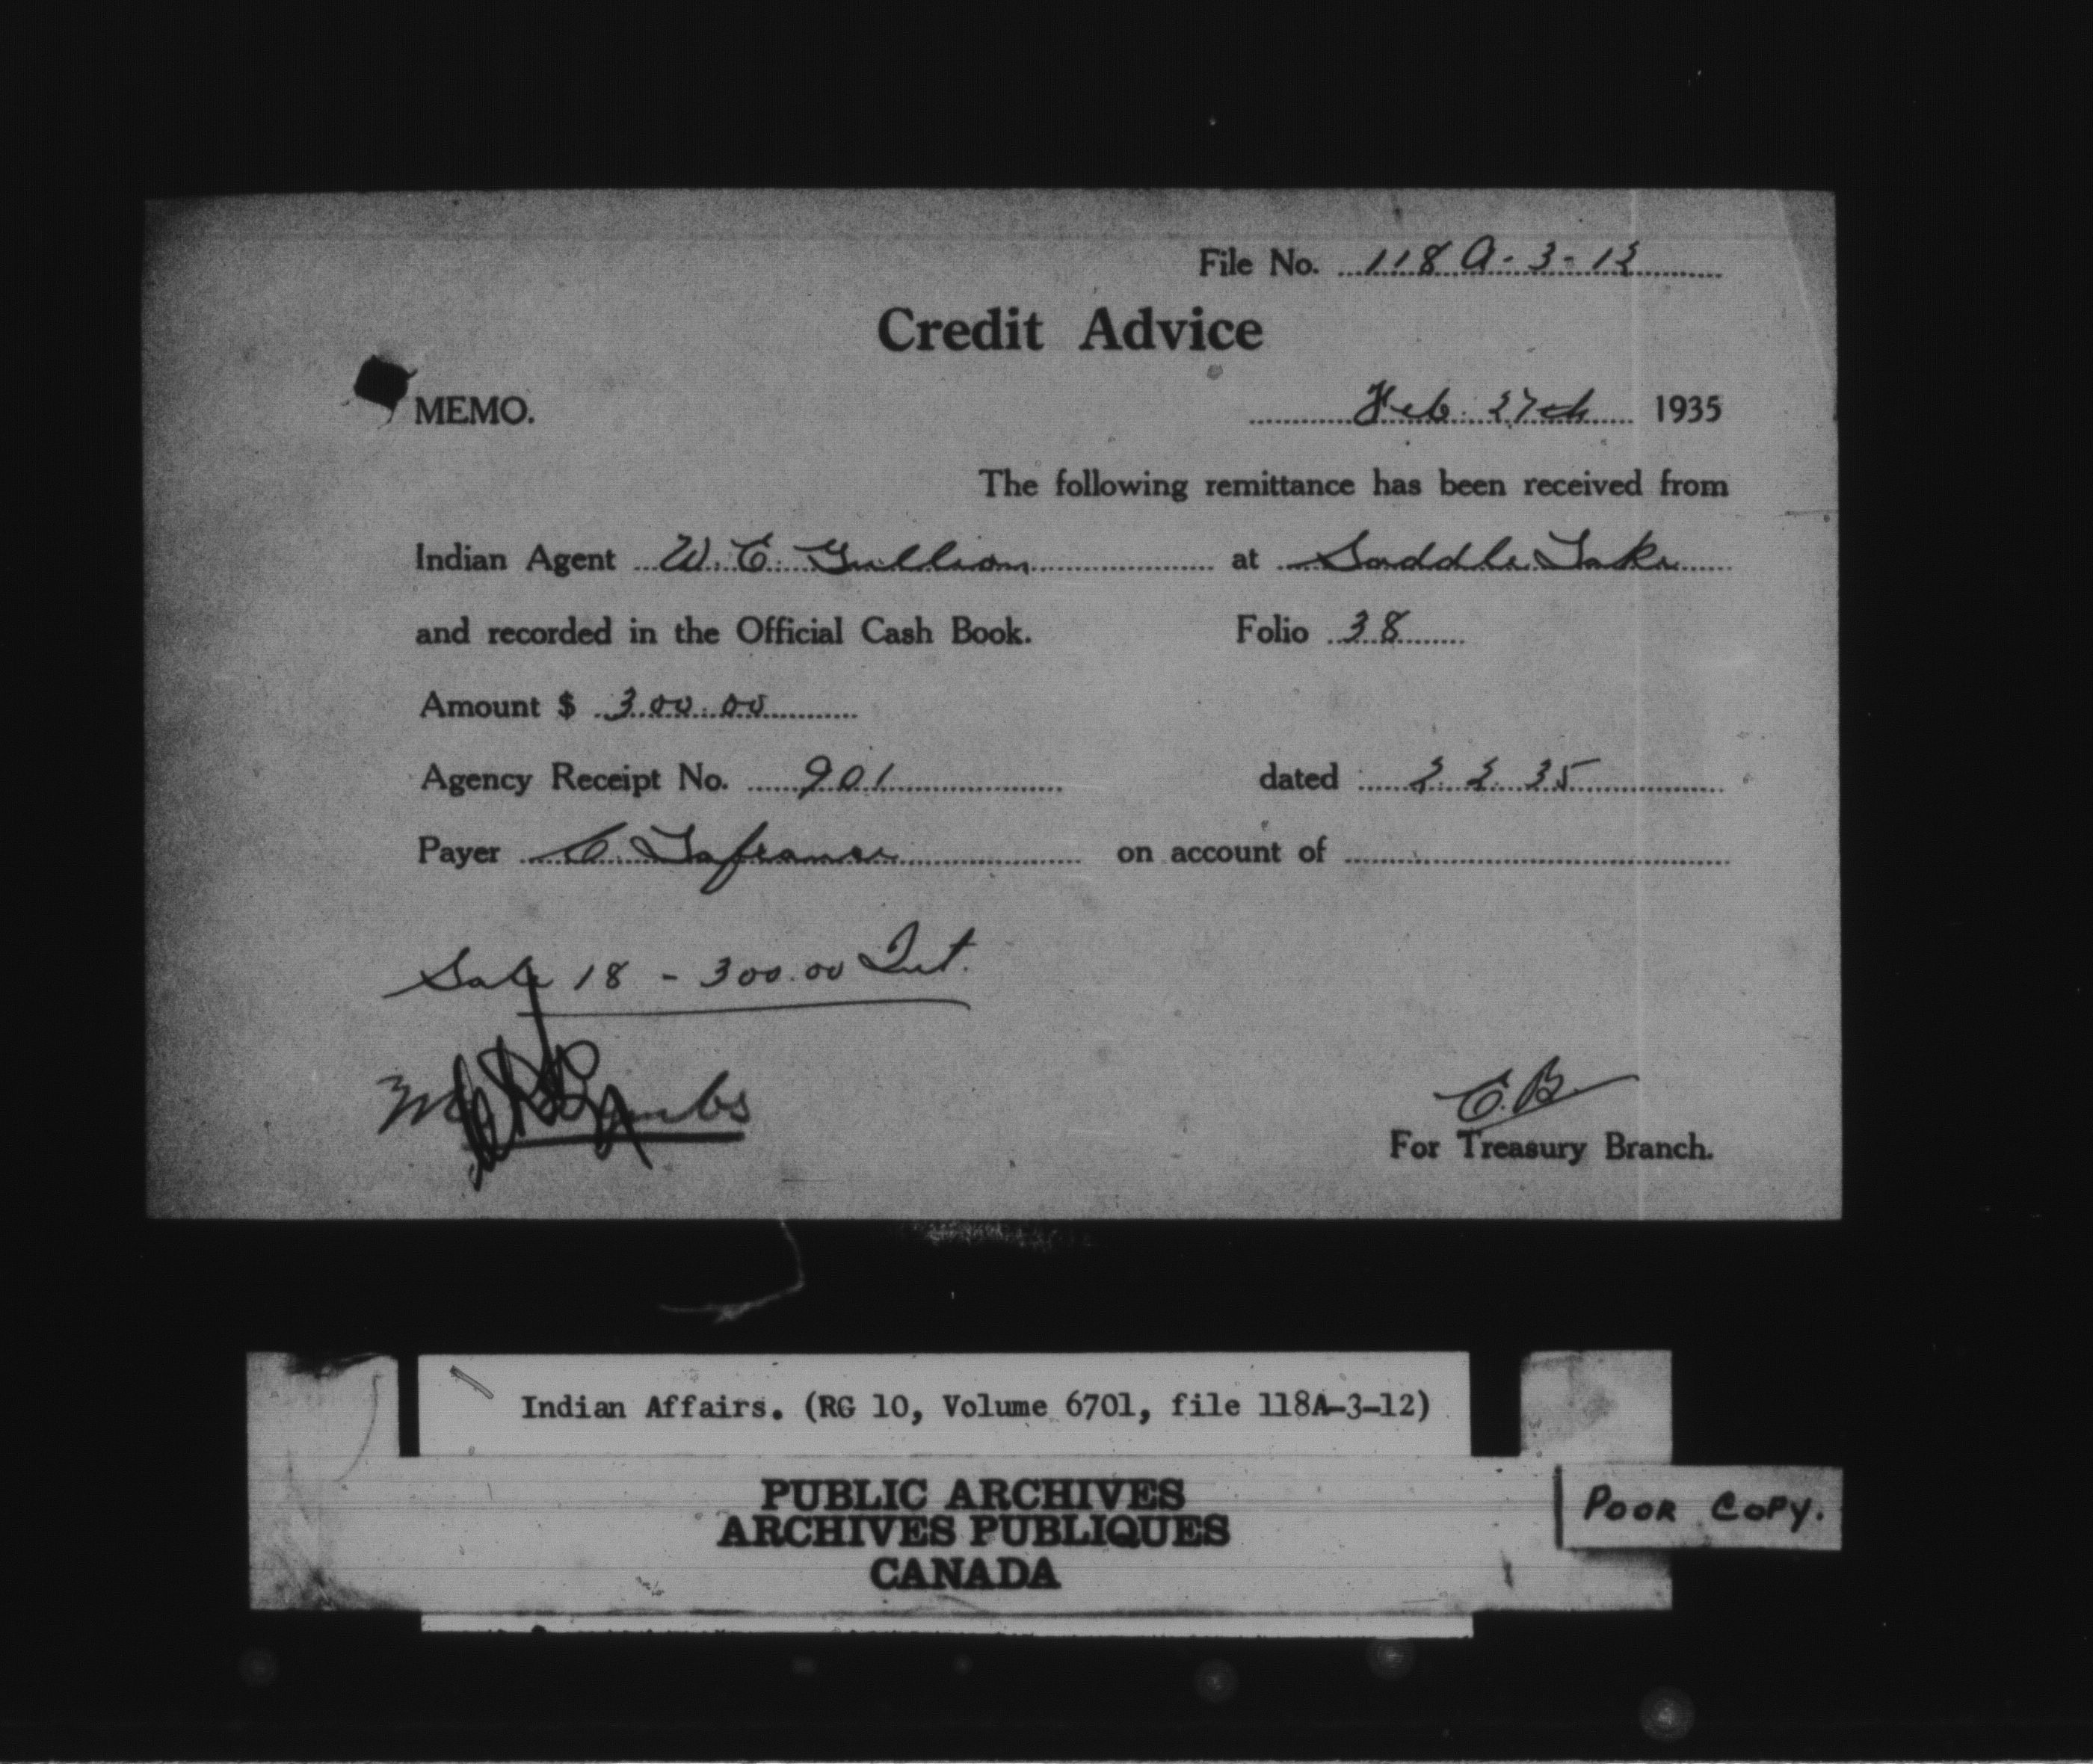 File No. 118 A-3-12
Credit Advice
MEMO.
Feb. 27th 1935
The following remittance has been received from
Indian Agent W. E. Gullion at Saddle Lake
and recorded in the Official Cash Book. Folio 38
Amount $ 300.00
Agency Receipt No. 901 dated 2. 2. 35
Payer C. Lafrance on account of
Sale 18 - 300.00 Int.
E.B.
For Treasury Branch.
Indian Affairs. (RG 10, Volume 6701, file 118A-3-12)
PUBLIC ARCHIVES
ARCHIVES PUBLIQUES
CANADA
POOR COPY.